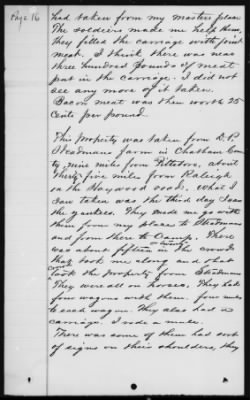 Page 16
had taken from my masters place
The soldiers made me help them,
they filled the carriage with joint
meat. I think there was near
three hundred pounds of meat
put in the carriage. I did not
see any more of it taken.
Bacon meat was then worth 25
cents per pound.
This Property was taken from D.P.
Steadmans farm in Chatham Coun
ty, nine miles from Pittsboro, about
thirty five miles from Raleigh
on the Haywood road. What I
saw taken was the third day I saw
the yankees. They made me go with
them from my place to Steadmans
and from there to Camp. There
was about fifteen in the crowd
that took me along and that
took the property from Steadman
They were all on horses. They had
four wagons with them, four mules
to each wagon. They also had a
carriage. I rode a mule.
There was some of them had sort
of signs on their shoulders, they